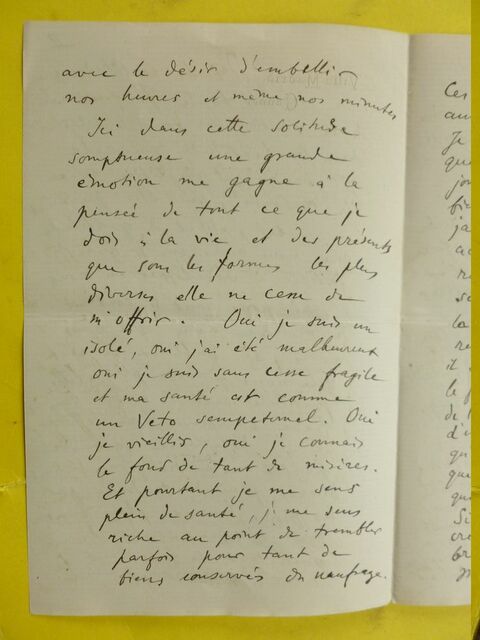 avec le désir d'embellir
nos heures et même nos minutes
Ici dans cette solitude
somptueuse une grande
émotion me gagne à la
pensée de tout ce que je
dois à la vie et des présents
que sous les formes les plus
diverses elle ne cesse de
m'offrir. Oui je suis un
isolé, oui j'ai été malheureux
oui je suis sans cesse fragile
et ma santé est comme
un Veto sempeternel. Oui
je vieillis, oui je connais
le fond de tant de misères.
Et pourtant je me sens
plein de santé, je me sens
riche au point de trembler
parfois pour tant de
biens conservés du naufrage.
Ces
Je
que